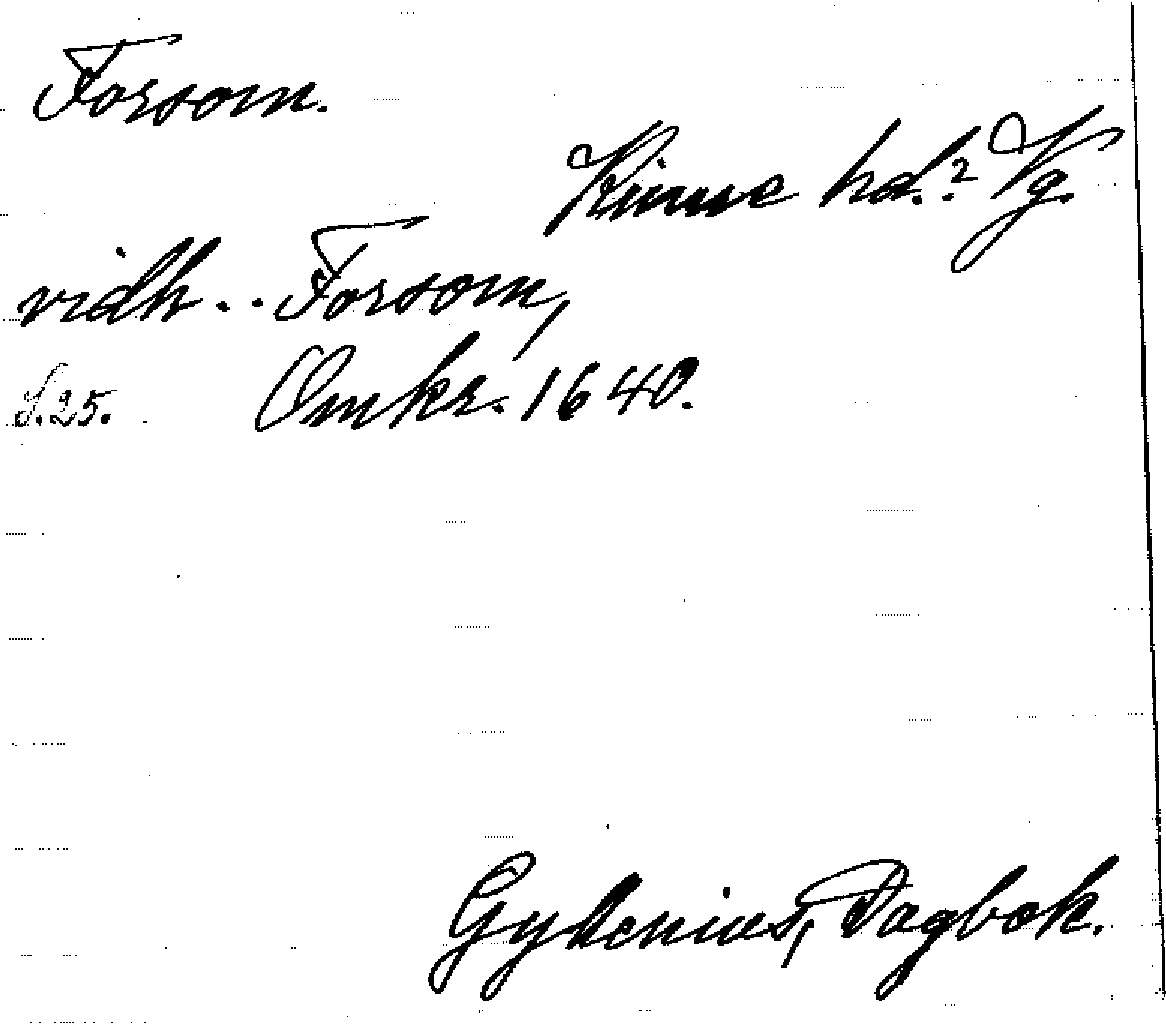 Forsom.
Kinne hd.? Vg.
vidh .. Forsom,
S.25. Omkr. 1640.
Gyllenius, Dagbok.